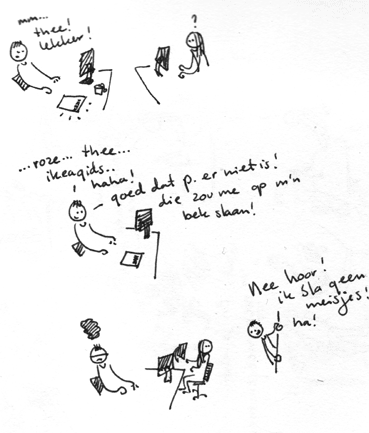 mm...
thee!
lekker!
?
...roze... thee...
ikeagids..
haha!
goed dat p. er niet is!
die zou me op m'n
bek slaan!
Nee hoor!
ik sla geen
meisjes!
ha!